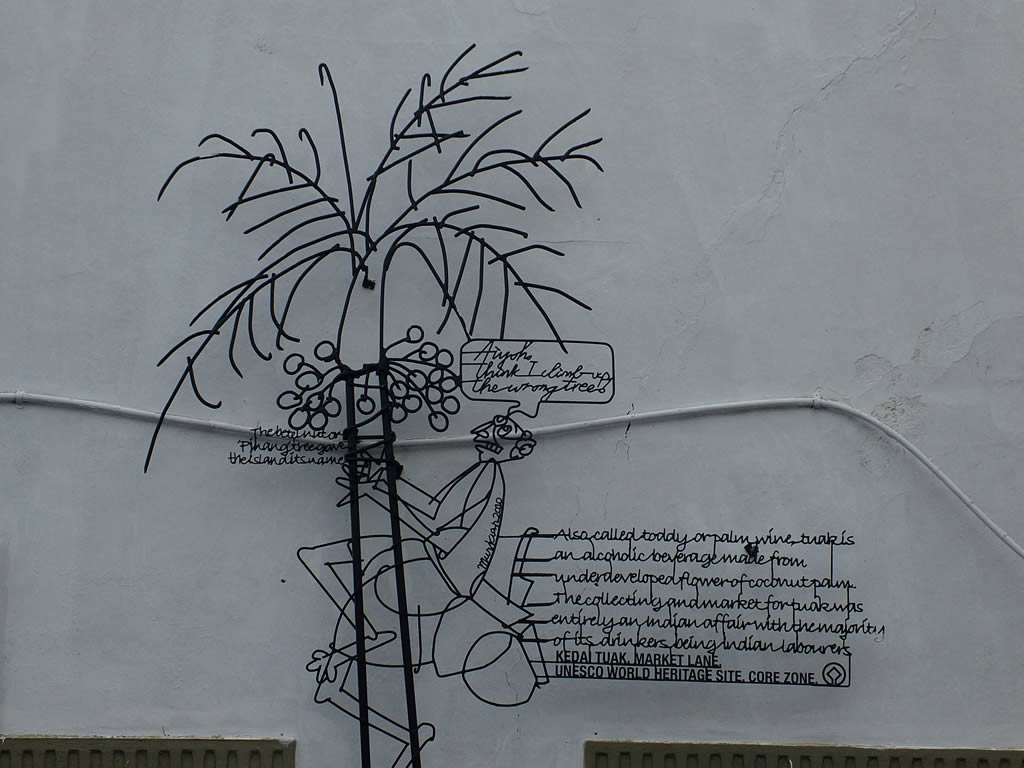 Aiyoh,
think I climb up
the wrong trees
The betel nut or
Pinang tree gave
the island its name
Also called toddy or palm wine, tuak is
an alcoholic beverage made from
underdeveloped flower of coconut palm.
The collecting and market for tuak was
entirely an indian affair with the majority
of its drinkers being indian labourers
KEDAI TUAK, MARKET LANE,
UNESCO WORLD HERITAGE SITE, CORE ZONE.